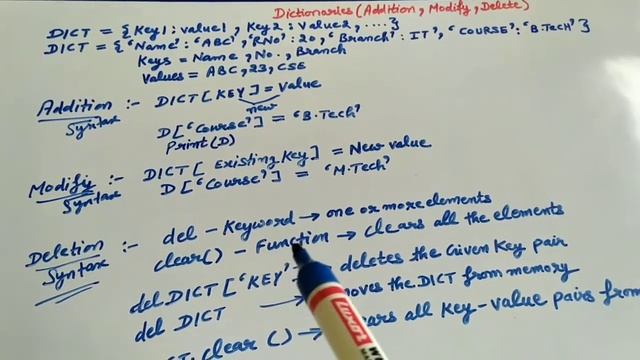 Dictionaries (Addition, Modify, Delete)
DICT = {Key1 : value1, Key2 : Value2, ....}
DICT = {'Name' : 'ABC', 'RNo' : 20, 'Branch' : IT', 'COURSE' : 'B.Tech'}
Keys = Name, No., Branch
Values = ABC, 23, CSE
Addition :- DICT [KEY] = Value
Syntax new
D['Course'] = 'B.Tech'
Print(D)
Modify :- DICT [Existing Key] = New value
Syntax D['Course'] = 'M.Tech'
Deletion :- del - Keyword → one or more elements
Syntax clear() - Function → clears all the elements
del DICT ['KEY' deletes the Given Key pair
del DICT → moves the DICT from memory
clear () → ears all Key-value pairs from
LUXOR